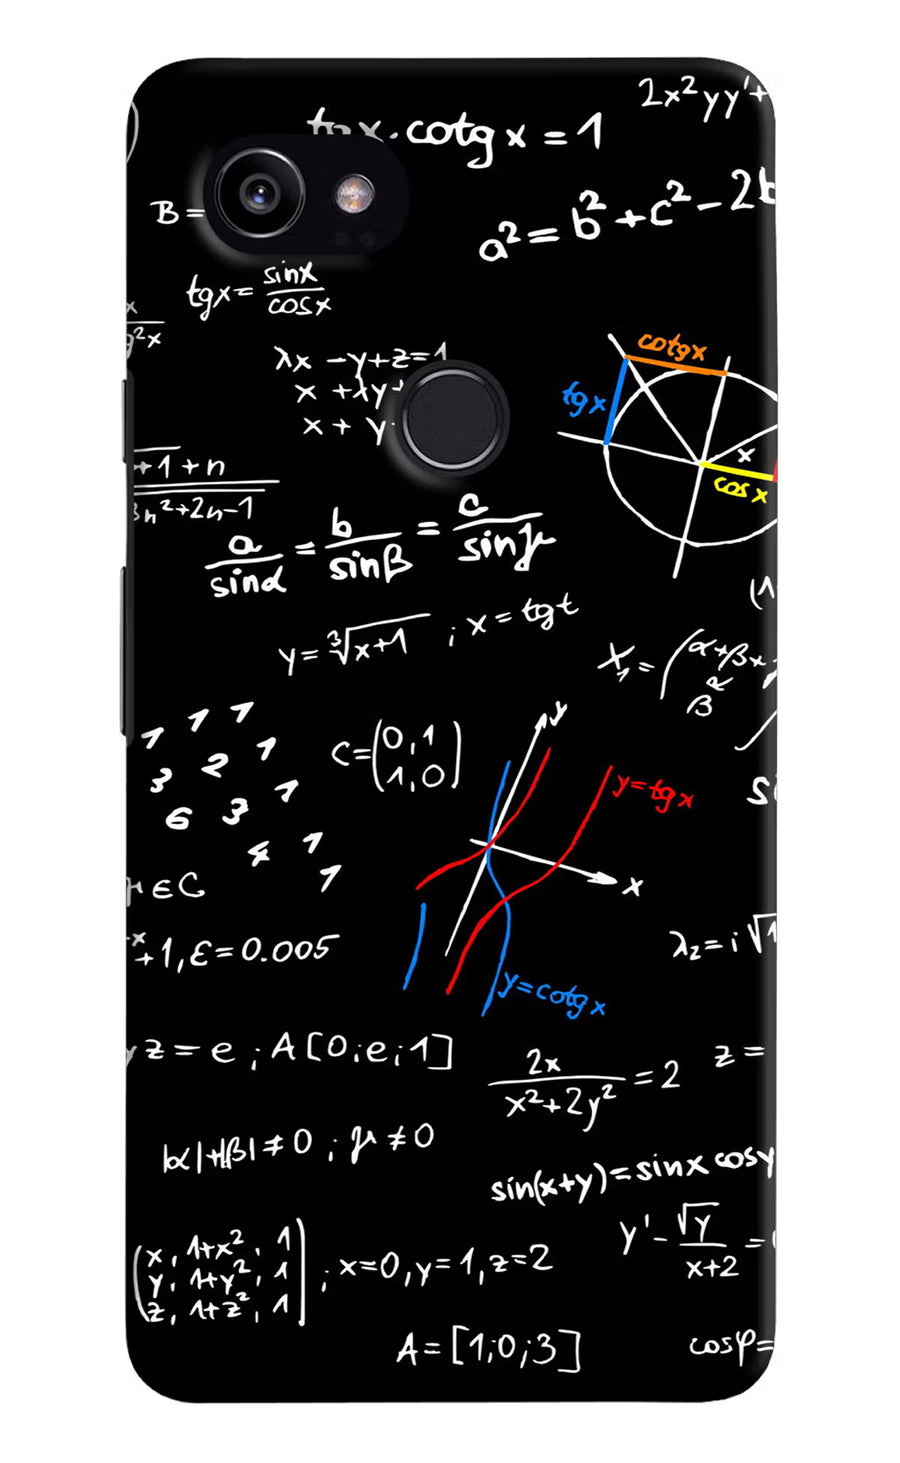 2x²yy'+
tgx·cotgx=1
B=
a²=b²+c²-2b
tgx=sinx/cosx
x/g²x
λx-y+z=1
x+λy+
x+y
cotgx
tgx
x
cosx
+1+n/3n²+2n-1
a/sinα=b/sinβ=c/sinγ
y=∛x+1 ; x=tgt
(1
X₁=(α+β+
α
β
1 1 1
3 2 1
6 3 1
4 1
1
C=(0,1
1,0)
y
y=tgx
x
y=cotgx
si
μ∈C
-x+1,ε=0.005
λ₂=i√1
yz=e ; A[0;e;1]
2x/x²+2y²=2
z=
|α|+|β|≠0 ; μ≠0
sin(x+y)=sinx cosy
y'-√y/x+2=
(x, 1+x², 1
y, 1+y², 1
z, 1+z², 1) ; x=0,y=1,z=2
A=[1;0;3]
cosφ=